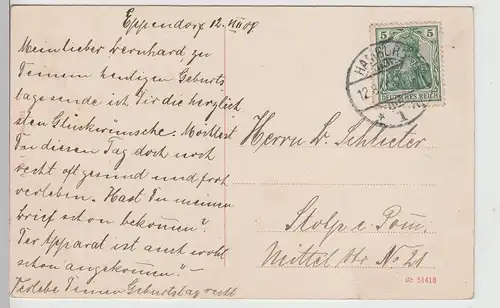 Eppendorf 12. VIII 07
Mein lieber Bernhard, zu
Deinem heutigen Geburts
tage sende ich Dir die herzlich
sten Glückwünsche. Möchtest
Du diesen Tag doch noch
recht oft gesund und froh
verleben. Hast Du meinen
Brief schon bekommen?
Der Apparat ist auch wohl
schon angekommen? –
Verlebe Deinen Geburtstag recht
5 5
DEUTSCHES REICH
HAMBURG
12.8
1
Herrn B. Schlieter
Stolp i. Pom.
Mittel Str. No 21
53418